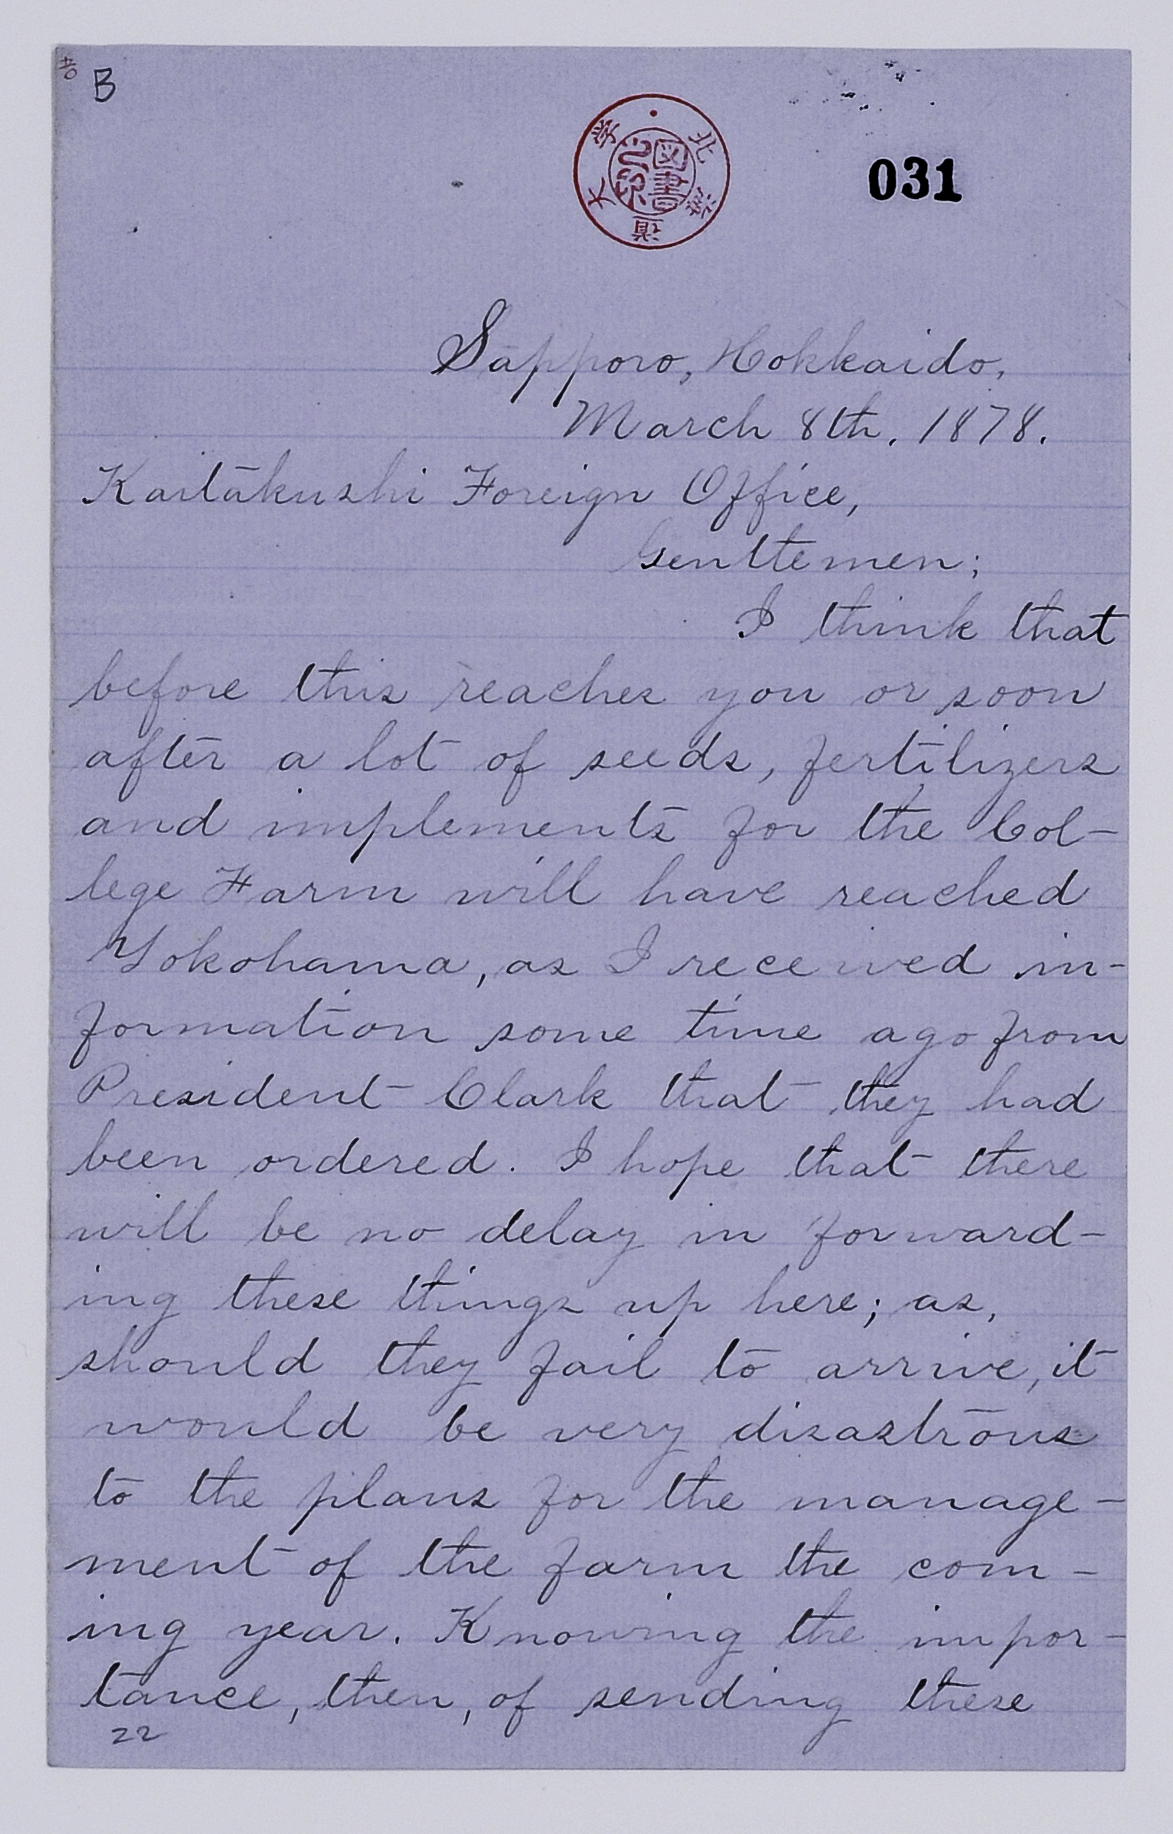 B
031
北海道大学図書
Sapporo, Hokkaido,
March 8th. 1878.
Kaitakushi Foreign Office,
Gentlemen;
I think that
before this reaches you or soon
after a lot of seeds, fertilizers
and implements for the Col-
lege Farm will have reached
Yokohama, as I received in-
formation some time ago from
President Clark that they had
been ordered. I hope that there
will be no delay in forward-
ing these things up here; as,
should they fail to arrive, it
would be very disastrous
to the plans for the manage-
ment of the farm the com-
ing year. Knowing the impor-
tance, then, of sending these
22